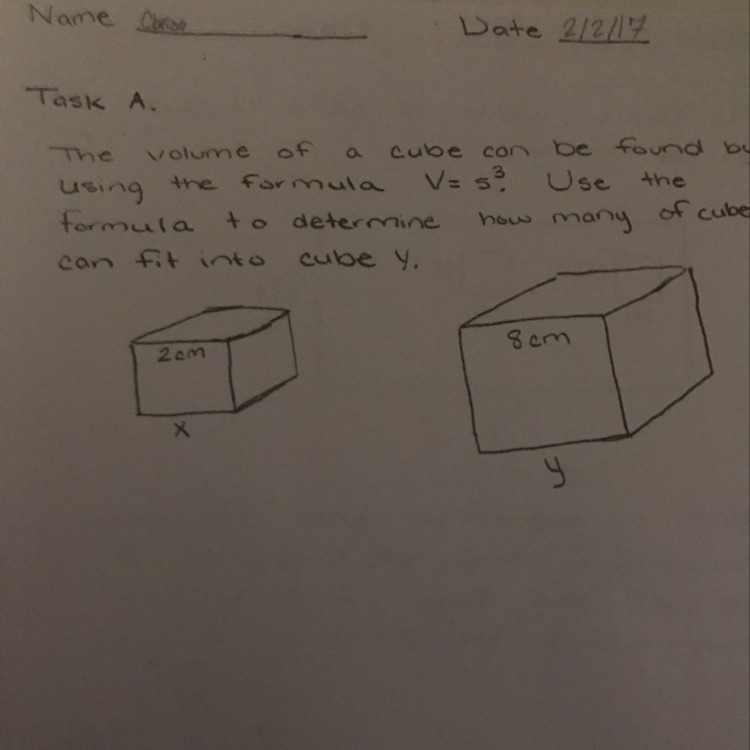 Name Date 2/2/17
Task A.
The volume of a cube can be found by
using the formula V= s³. Use the
formula to determine how many of cube
can fit into cube y.
2cm 8cm
x
y